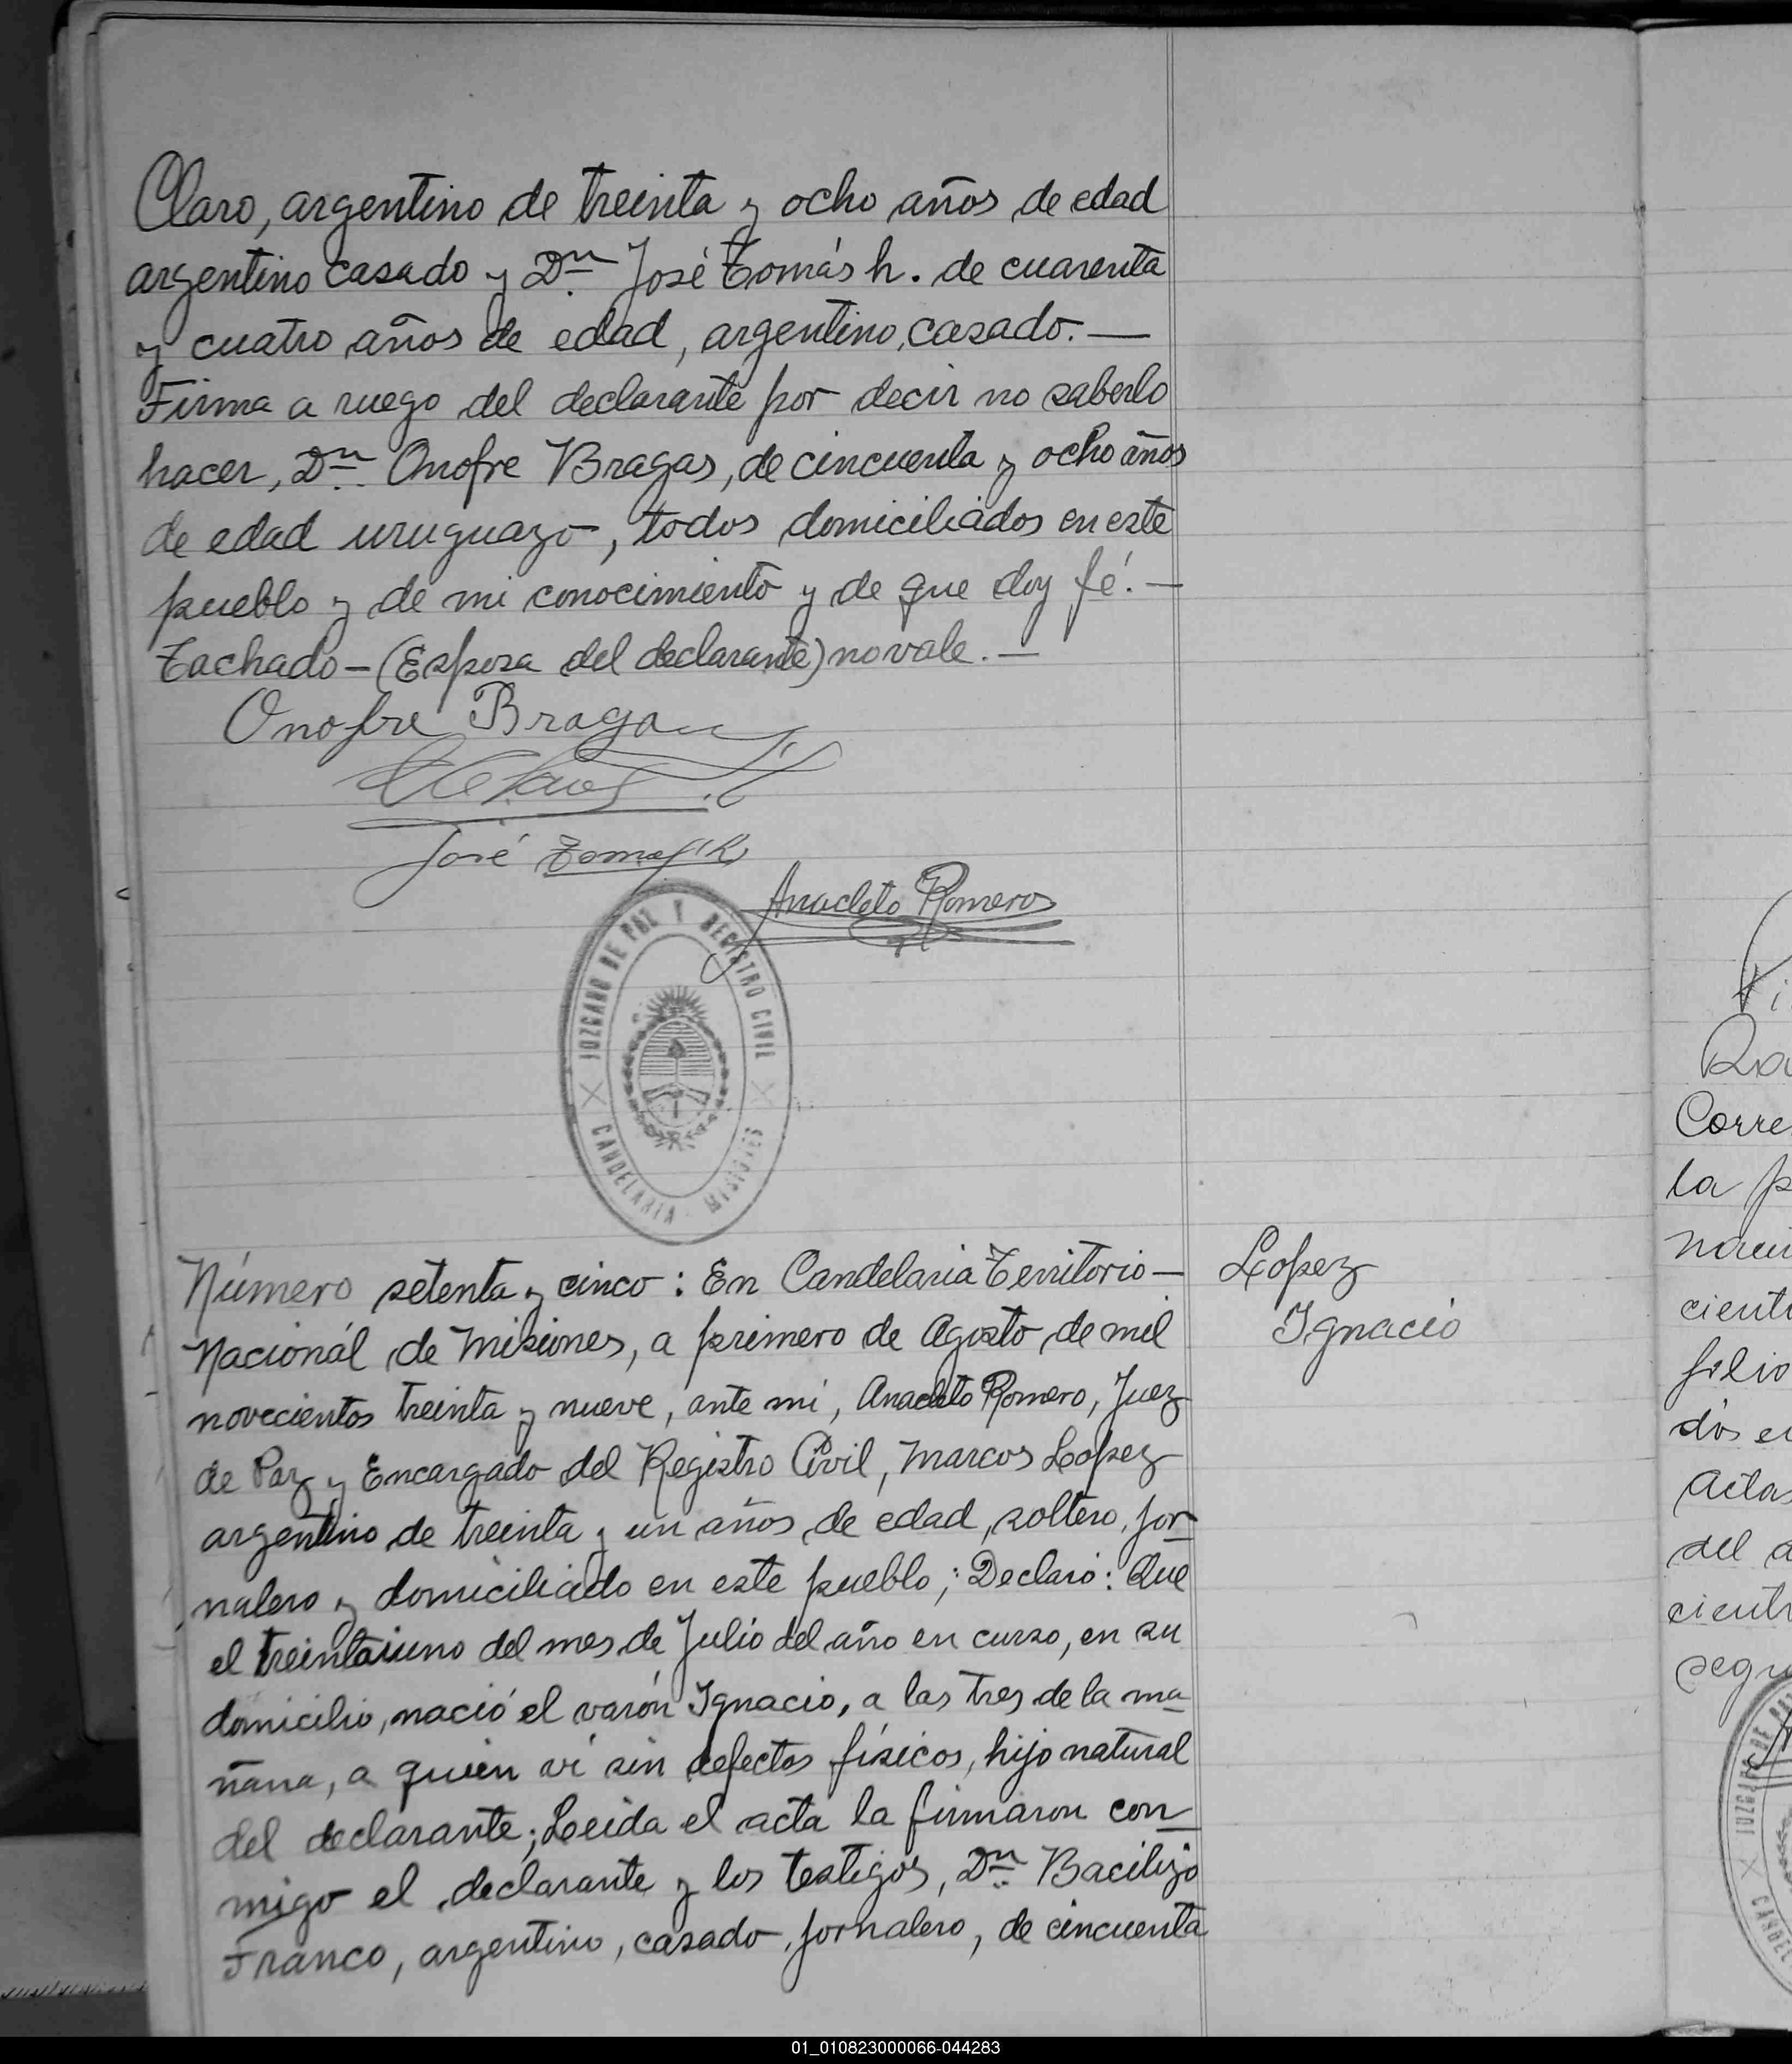 Claro, argentino de treinta y ocho años de edad
argentino casado y Dn José Tomás h. de cuarenta
y cuatro años de edad, argentino, casado.—
Firma a ruego del declarante por decir no saberlo
hacer, Dn Onofre Bragas, de cincuenta y ocho años
de edad uruguayo, todos domiciliados en este
pueblo y de mi conocimiento y de que doy fé.—
Tachado—(Esposa del declarante) no vale.—
Onofre Bragas
José Tomas (h)
Anacleto Romero
JUZGADO DE PAZ Y REGISTRO CIVIL
CANDELARIA - MISIONES
Lopez
Ignacio
Número setenta y cinco: En Candelaria Territorio—
Nacionál de Misiones, a primero de Agosto de mil
novecientos treinta y nueve, ante mí, Anacleto Romero, Juez
de Paz y Encargado del Registro Civil, Marcos Lopez
argentino de treinta y un años de edad, soltero, jor-
nalero y domiciliado en este pueblo; Declaró: Que
el treintaiuno del mes de Julio del año en curso, en su
domicilio, nació el varón Ignacio, a las tres de la ma-
ñana, a quien ví sin defectos físicos, hijo natural
del declarante; Leida el acta la firmaron con-
migo el declarante y los testigos, Dn Bacilizo
Franco, argentino, casado, jornalero, de cincuenta
Corre
la p
cient
filio
dos e
Actas
del a
cient
segu
01_010823000066-044283